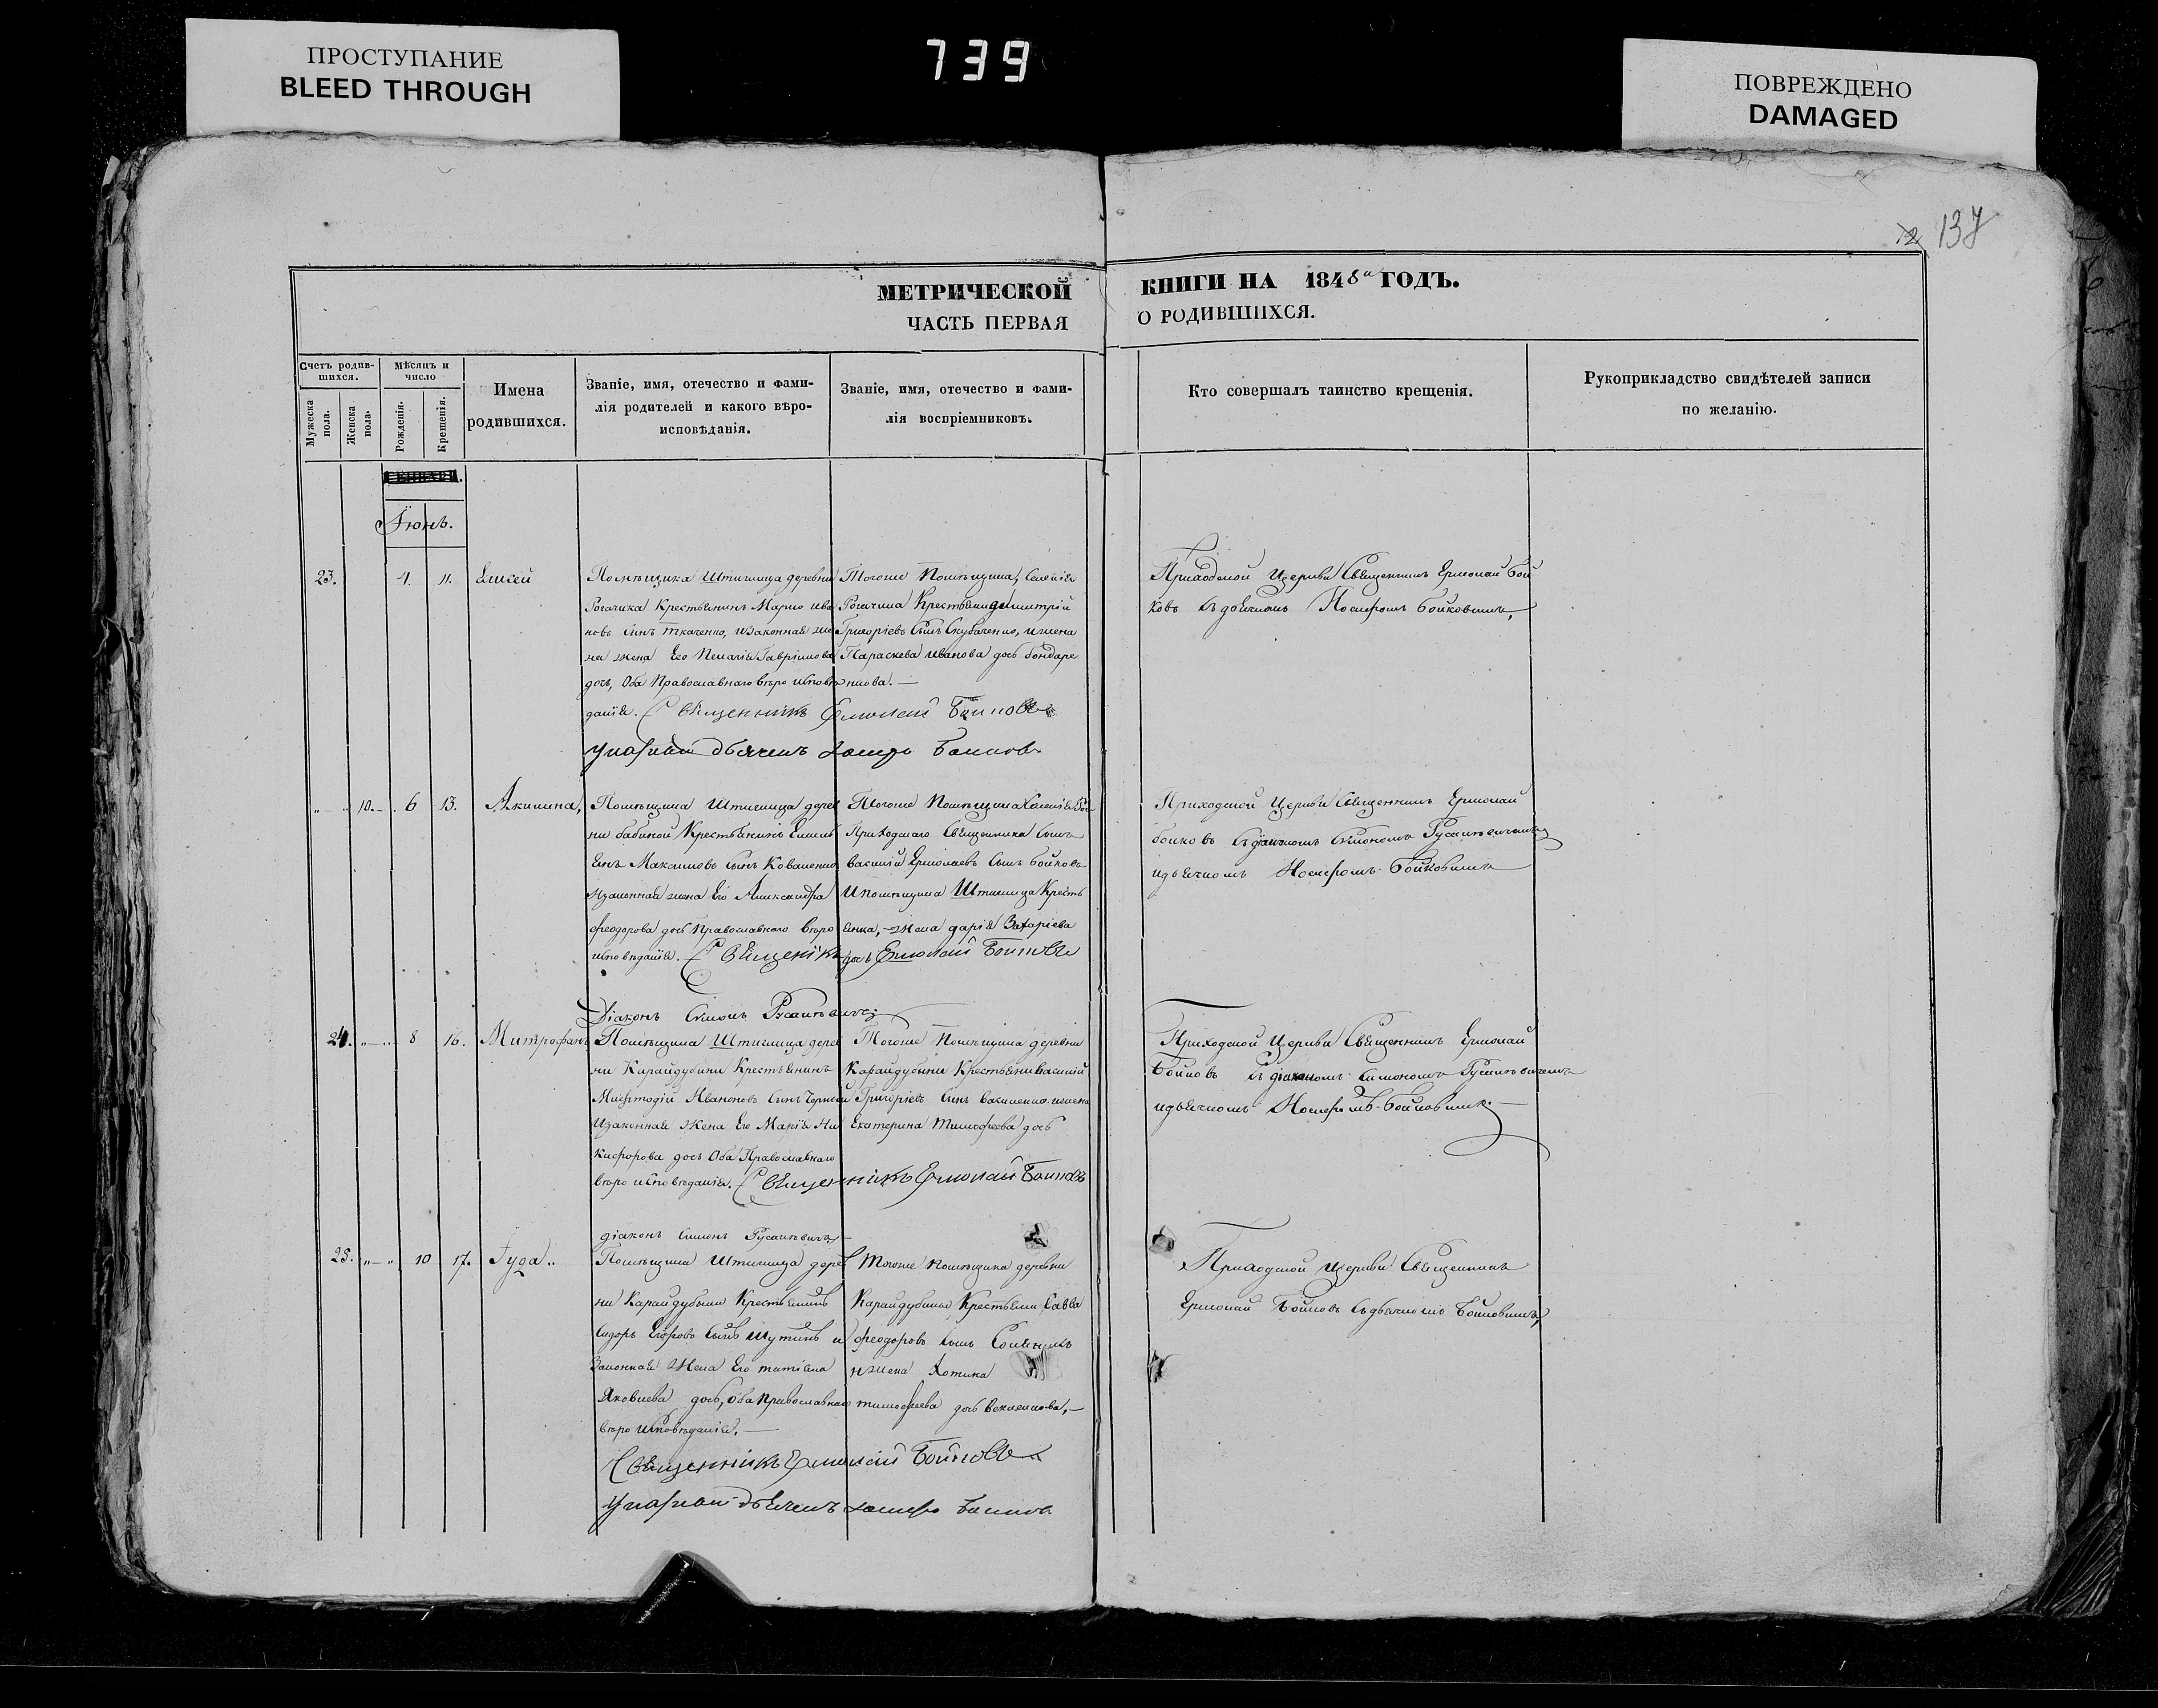 ПРОСТУПАНИЕ
BLEED THROUGH
739
ПОВРЕЖДЕНО
DAMAGED
12 137
МЕТРИЧЕСКОЙ КНИГИ НА 1848й ГОДЪ.
ЧАСТЬ ПЕРВАЯ О РОДИВШИХСЯ.
Счетъ родив-
шихся.
Мужеска
пола.
Женска
пола.
Мѣсяцъ и
число
Рожденія.
Крещенія.
Имена
родившихся.
Званіе, имя, отечество и фами-
лія родителей и какого вѣро-
исповѣданія.
Званіе, имя, отечество и фами-
лія воспріемниковъ.
Кто совершалъ таинство крещенія.
Рукоприкладство свидѣтелей записи
по желанію.
Іюнь.
23. 4. 11. Елисей
Помѣщика Штиглица деревни
Рогачика Крестьянинъ Марко Ива
новъ сынъ Ткаченко, и законная
жена Его Пелагія Гавріилова
дочь, Оба Православнаго вѣро исповѣ
данія. Священникъ Ермолай Бойковъ
дьячекъ Бойковъ
Тогоже Помѣщика, Селенія
Рогачика Крестьянинъ Димитрій
Григоріевъ Сынъ Скубаченко, и жена
Параскева Иванова дочь бондаре
нкова.
Приходской Церкви Священникъ Ермолай Бой
ковъ съ дьячкомъ Іосифомъ Бойковымъ,
10. 6 13. Акилина,
Помѣщика Штиглица дерев
ни бабиной Крестьянинъ
Максимовъ сынъ Коваленко
и законная жена Его Александра
Феодорова дочь Православнаго вѣро
исповѣданія. Священникъ Ермолай Бойковъ
Діаконъ Симонъ Русаневичъ
Тогоже Помѣщика Селенія
Приходскаго Священника Сынъ
василій Ермолаевъ Сынъ Бойковъ
и помѣщика Штиглица Кресть
янка, жена дарія Захаріева
дочь
Приходской Церкви Священникъ Ермолай
бойковъ съ діакономъ Симономъ Русаневичемъ
и дьячкомъ Іосифомъ Бойковымъ
24. 8 16. Митрофанъ
Помѣщика Штиглица дерев
ни Карайдубини Крестьянинъ
Мифтодій Ивановъ сынъ
И законная жена Его Марія Ни
кифорова дочь Оба Православнаго
вѣро исповѣданія. Священникъ Ермолай Бойковъ
діаконъ Симонъ Русаневичъ
Тогоже Помѣщика деревни
Карайдубини Крестьянинъ василій
Григоріевъ Сынъ Вакуленко и жена
Екатерина Тимофеева дочь
Приходской Церкви Священникъ Ермолай
Бойковъ съ діакономъ Симономъ Русаневичемъ
и дьячкомъ Іосифомъ Бойковымъ.
25. 10 17. Іуда
Помѣщика Штиглица дерев
ни Карайдубини Крестьянинъ
Сидоръ Егоровъ Сынъ Шутинъ и
Законная Жена Его татіана
Яковлева дочь, оба Православнаго
вѣро исповѣданія.
Священникъ Ермолай Бойковъ
дьячекъ Бойковъ
Тогоже помѣщика деревни
Карайдубины Крестьянинъ Савва
феодоровъ Сынъ
и жена Хотина
тимофеева дочь
Приходской Церкви Священникъ
Ермолай Бойковъ съ дьячкомъ Бойковымъ,